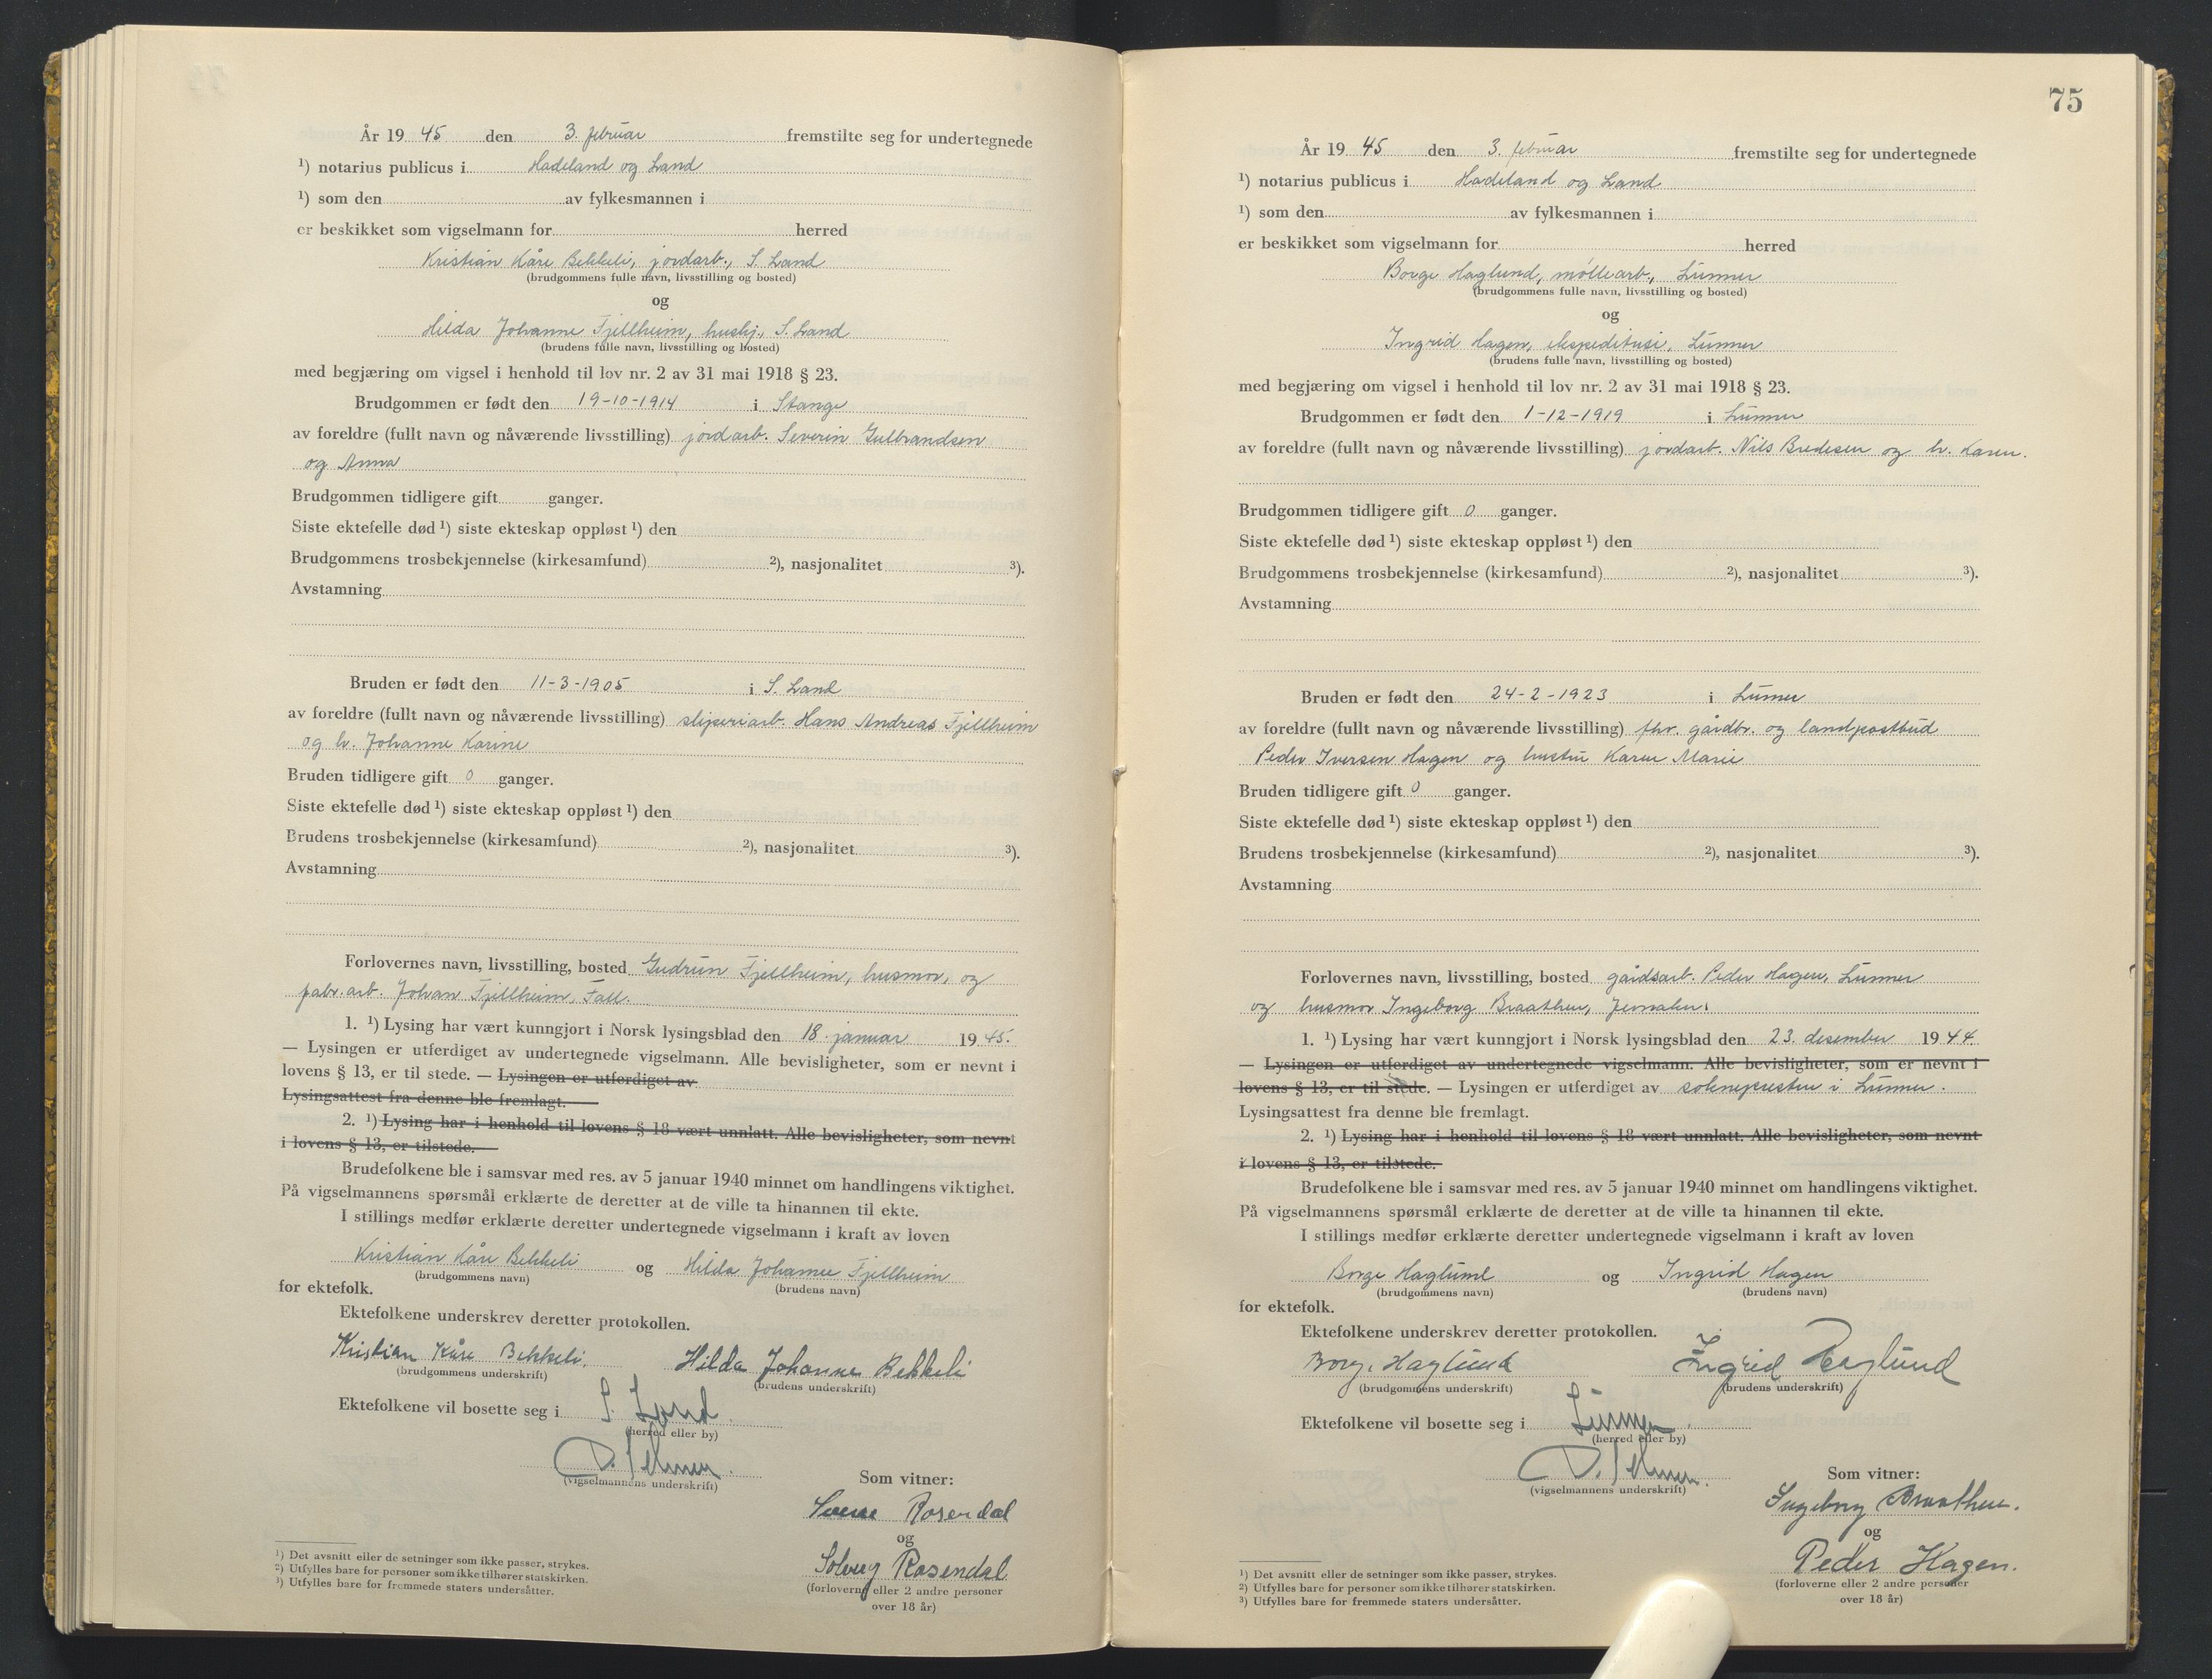 År 19 45 den 3. februar fremstilte seg for undertegnede
¹) notarius publicus i Hadeland og Land
¹) som den av fylkesmannen i
er beskikket som vigselmann for herred
Kristian Kåre Bekkeli, jordarb., S. Land
(brudgommens fulle navn, livsstilling og bosted)
og
Hilda Johanne Fjellheim, hushj., S. Land
(brudens fulle navn, livsstilling og bosted)
med begjæring om vigsel i henhold til lov nr. 2 av 31 mai 1918 § 23.
Brudgommen er født den 19-10-1914 i Stange
av foreldre (fullt navn og nåværende livsstilling) jordarb. Severin Gulbrandsen
og Anna
Brudgommen tidligere gift ganger.
Siste ektefelle død ¹) siste ekteskap oppløst ¹) den
Brudgommens trosbekjennelse (kirkesamfund) ²), nasjonalitet ³).
Avstamning
Bruden er født den 11-3-1905 i S. Land
av foreldre (fullt navn og nåværende livsstilling) sliperiarb. Hans Andreas Fjellheim
og h. Johanne Karine
Bruden tidligere gift 0 ganger.
Siste ektefelle død ¹) siste ekteskap oppløst ¹) den
Brudens trosbekjennelse (kirkesamfund) ²), nasjonalitet ³).
Avstamning
Forlovernes navn, livsstilling, bosted Gudrun Fjellheim, husmor, og
fabr.arb. Johan Fjellheim, Fall.
1. ¹) Lysing har vært kunngjort i Norsk lysingsblad den 18. januar 19 45.
— Lysingen er utferdiget av undertegnede vigselmann. Alle bevisligheter, som er nevnt i
lovens § 13, er til stede. — Lysingen er utferdiget av
Lysingsattest fra denne ble fremlagt.
2. ¹) Lysing har i henhold til lovens § 18 vært unnlatt. Alle bevisligheter, som nevnt
i lovens § 13, er tilstede.
Brudefolkene ble i samsvar med res. av 5 januar 1940 minnet om handlingens viktighet.
På vigselmannens spørsmål erklærte de deretter at de ville ta hinannen til ekte.
I stillings medfør erklærte deretter undertegnede vigselmann i kraft av loven
Kristian Kåre Bekkeli og Hilda Johanne Fjellheim
(brudgommens navn) (brudens navn)
for ektefolk.
Ektefolkene underskrev deretter protokollen.
Kristian Kåre Bekkeli. Hilda Johanne Bekkeli
(brudgommens underskrift) (brudens underskrift)
Ektefolkene vil bosette seg i S. Land.
(herred eller by)
(vigselmannens underskrift)
Som vitner:
Rosendal
og
Solveig Rosendal
(forloverne eller 2 andre personer
over 18 år)
¹) Det avsnitt eller de setninger som ikke passer, strykes.
²) Utfylles bare for personer som ikke tilhører statskirken.
³) Utfylles bare for fremmede staters undersåtter.
75
År 19 45 den 3. februar fremstilte seg for undertegnede
¹) notarius publicus i Hadeland og Land
¹) som den av fylkesmannen i
er beskikket som vigselmann for herred
Borge Haglund, møllearb., Lunner
(brudgommens fulle navn, livsstilling og bosted)
og
Ingrid Hagen, ekspeditrise, Lunner
(brudens fulle navn, livsstilling og bosted)
med begjæring om vigsel i henhold til lov nr. 2 av 31 mai 1918 § 23.
Brudgommen er født den 1-12-1919 i Lunner
av foreldre (fullt navn og nåværende livsstilling) jordarb. Nils Bredesen og h. Karen.
Brudgommen tidligere gift 0 ganger.
Siste ektefelle død ¹) siste ekteskap oppløst ¹) den
Brudgommens trosbekjennelse (kirkesamfund) ²), nasjonalitet ³).
Avstamning
Bruden er født den 24-2-1923 i Lunner
av foreldre (fullt navn og nåværende livsstilling) fhv. gårdbr. og landpostbud
Peder Iversen Hagen og hustru Karen Marie
Bruden tidligere gift 0 ganger.
Siste ektefelle død ¹) siste ekteskap oppløst ¹) den
Brudens trosbekjennelse (kirkesamfund) ²), nasjonalitet ³).
Avstamning
Forlovernes navn, livsstilling, bosted gårdsarb. Peder Hagen, Lunner
og husmor Ingeborg Braathen, Jevnaker.
1. ¹) Lysing har vært kunngjort i Norsk lysingsblad den 23. desember 19 44.
— Lysingen er utferdiget av undertegnede vigselmann. Alle bevisligheter, som er nevnt i
lovens § 13, er til stede. — Lysingen er utferdiget av soknepresten i Lunner.
Lysingsattest fra denne ble fremlagt.
2. ¹) Lysing har i henhold til lovens § 18 vært unnlatt. Alle bevisligheter, som nevnt
i lovens § 13, er tilstede.
Brudefolkene ble i samsvar med res. av 5 januar 1940 minnet om handlingens viktighet.
På vigselmannens spørsmål erklærte de deretter at de ville ta hinannen til ekte.
I stillings medfør erklærte deretter undertegnede vigselmann i kraft av loven
Borge Haglund og Ingrid Hagen
(brudgommens navn) (brudens navn)
for ektefolk.
Ektefolkene underskrev deretter protokollen.
Borge Haglund Ingrid Haglund
(brudgommens underskrift) (brudens underskrift)
Ektefolkene vil bosette seg i Lunner.
(herred eller by)
(vigselmannens underskrift)
Som vitner:
Ingeborg Braathen.
og
Peder Hagen.
(forloverne eller 2 andre personer
over 18 år)
¹) Det avsnitt eller de setninger som ikke passer, strykes.
²) Utfylles bare for personer som ikke tilhører statskirken.
³) Utfylles bare for fremmede staters undersåtter.